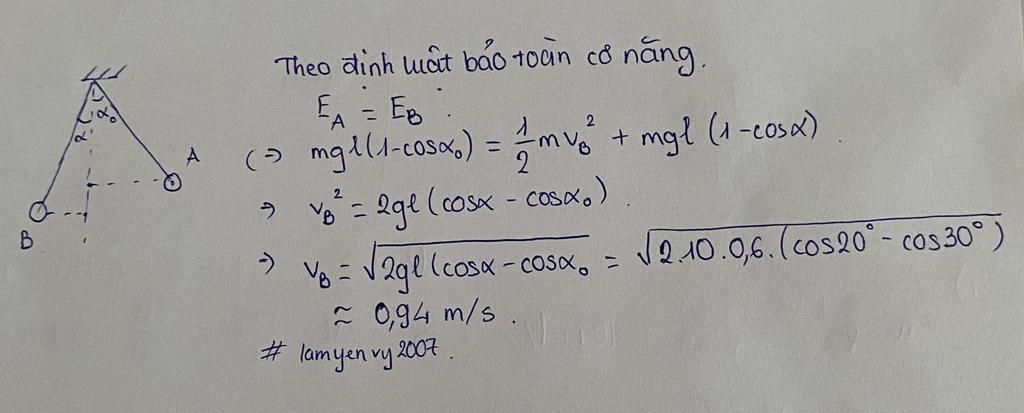 Theo định luật bảo toàn cơ năng.
E_A = E_B.
(=> mgl(1-cosα₀) = 1/2 mv_B² + mgl (1-cosα).
=> v_B² = 2gl (cosα - cosα₀).
=> v_B = √2gl (cosα - cosα₀ = √2.10.0,6.(cos20° - cos30°)
≈ 0,94 m/s.
# lamyenvy2007.
α₀
α
A
B